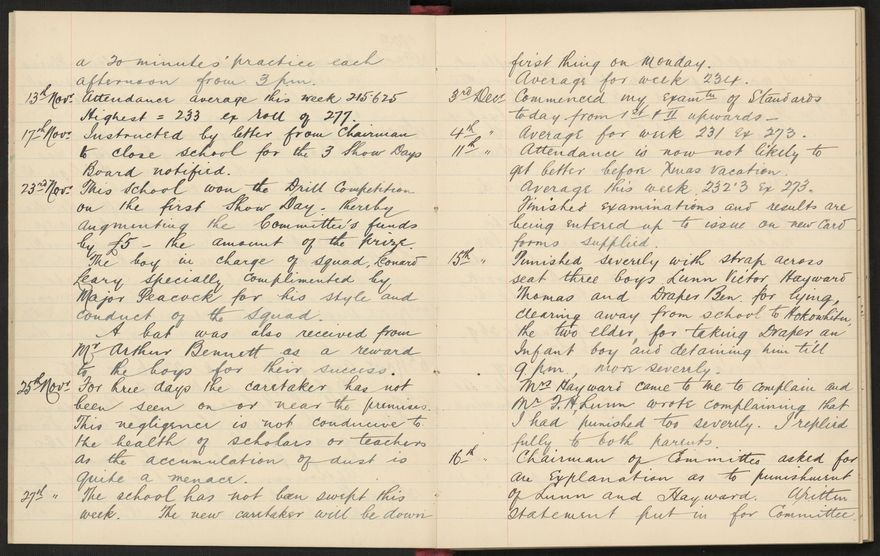 a 20 minutes' practice each
afternoon from 3 pm.
13th Novr. Attendance average this week 215.625
Highest = 233 ex roll of 277.
17th Novr. Instructed by letter from Chairman
to close school for the 3 Show Days
Board notified.
23rd Novr. This school won the Drill Competition
on the first Show Day - thereby
augmenting the Committee's funds
by £5 - the amount of the prize.
The boy in charge of squad, Leonard
Leary specially complimented by
Major Peacock for his style and
conduct of the squad.
A bat was also received from
Mr Arthur Bennett as a reward
to the boys for their success.
25th Novr. For three days the caretaker has not
been seen on or near the premises.
This negligence is not conducive to
the health of scholars or teachers
as the accumulation of dust is
quite a menace.
27th " The school has not been swept this
week. The new caretaker will be down
first thing on Monday.
Average for week 234.
3rd Decr Commenced my Examtn of Standards
today from 1st & II upwards -
4th " Average for week 231 Ex 273.
11th " Attendance is now not likely to
get better before Xmas vacation.
Average this week 232.3 Ex 273.
Finished Examinations and results are
being entered up to issue on new card
forms supplied.
15th " Punished severely with strap across
seat three boys Lunn Victor, Hayward
Thomas and Draper Ben. for lying,
clearing away from school to
the two elder, for taking Draper an
Infant boy and detaining him till
9 pm, more severely.
Mrs Hayward came to me to complain and
Mr F.H. Lunn wrote complaining that
I had punished too severely. I replied
fully to both parents.
16th " Chairman of Committee asked for
an Explanation as to punishment
of Lunn and Hayward. Written
Statement put in for Committee